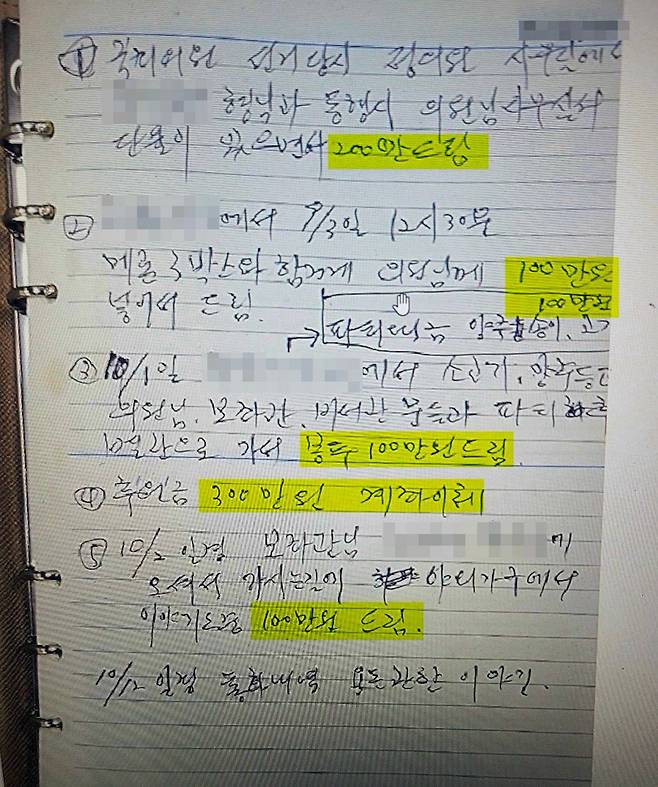 ① 국회의원 선거당시 정의원 사무실에서
형님과 동행시 의원님 사무실서
단둘이 있으면서 200만 드림
② 에서 9/3일 12시 30분
메론 3박스와 함께 의원님께 100만원
넣어서 드림. 100만원
→ 파티비금 양주 송이, 고기
③ 10/1일 에서 소고기, 양주등
의원님, 보좌관, 비서관 분들과 파티
별장으로 가서 봉투 100만원 드림.
④ 후원금 300만원 계좌이체
⑤ 10/2일경 보좌관님 에
오셔서 가시는길에 야외가구에서
이야기 100만원 드림.
10/12일경 통화내역 모든관한 이야기.